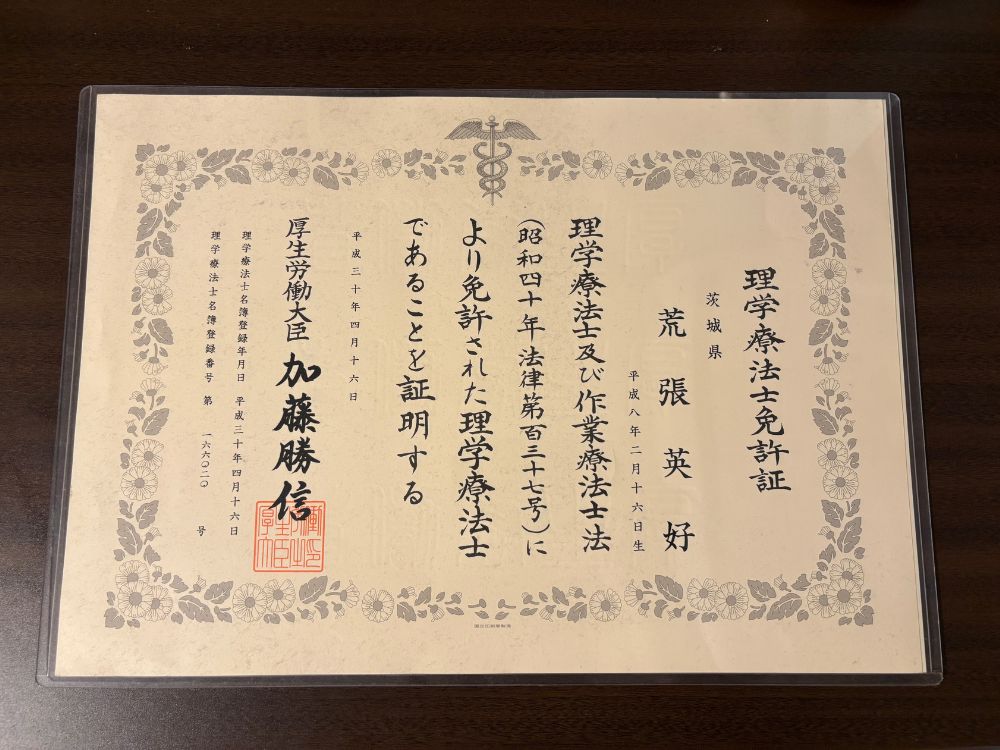 理学療法士免許証
茨城県
荒張英好
平成八年二月十六日生
理学療法士及び作業療法士法
(昭和四十年法律第百三十七号)に
より免許された理学療法士
であることを証明する
平成三十年四月十六日
厚生労働大臣 加藤勝信
理学療法士名簿登録年月日 平成三十年四月十六日
理学療法士名簿登録番号 第 一六六〇二〇 号